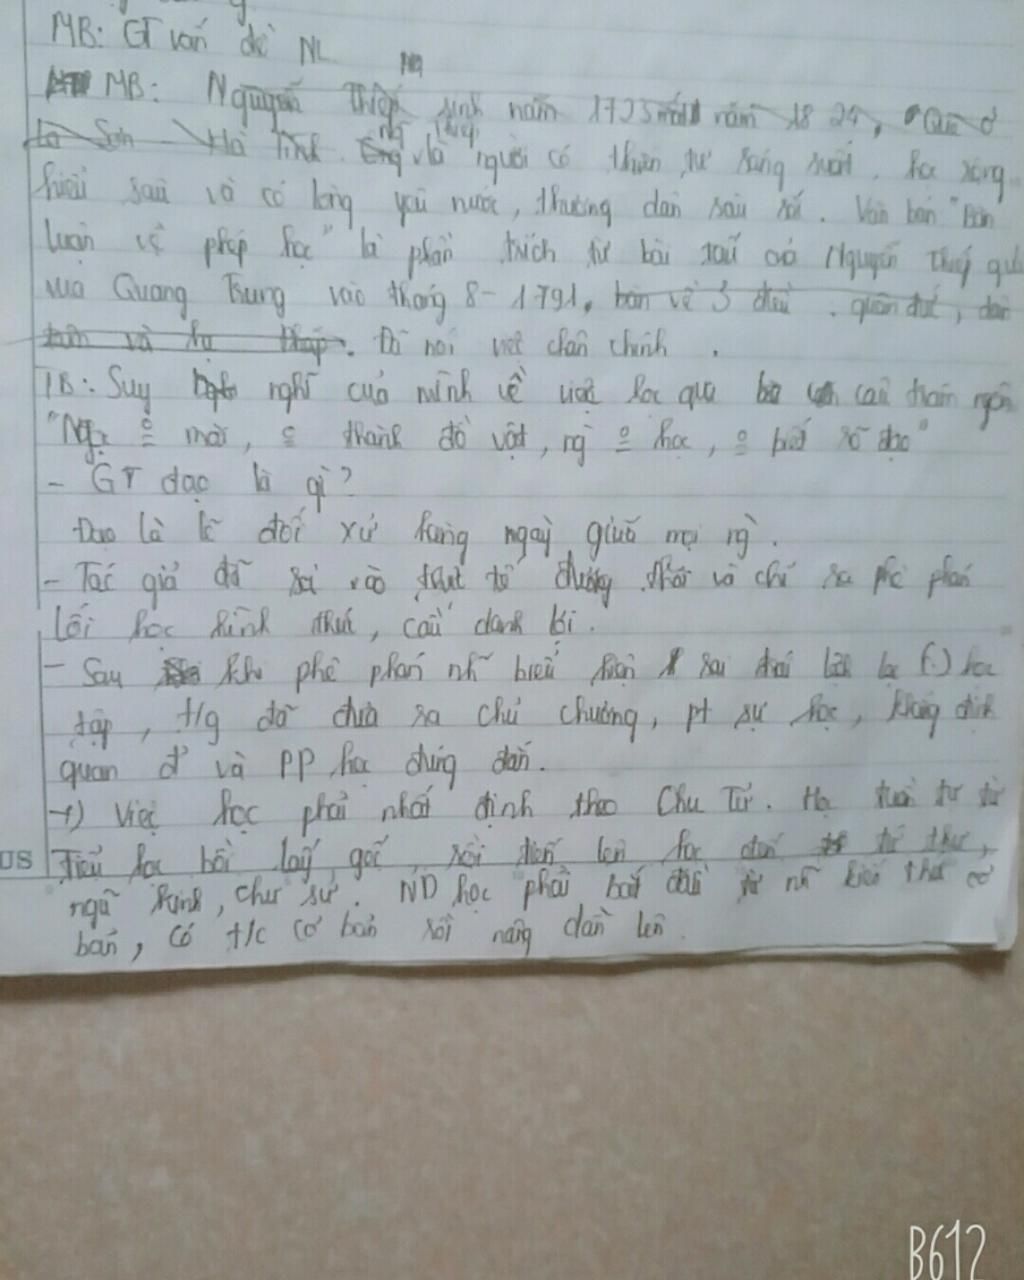 MB: GT vấn đề NL
MB: Nguyễn Thiếp sinh năm 1723 mất năm 1824, Quê ở
La Sơn Hà Tĩnh. Ông là người có thiên tư sáng suốt, học rộng
hiểu sâu và có lòng yêu nước, thương dân sâu sắc. Văn bản "Bàn
luận về phép học" là phần trích từ bài tấu của Nguyễn Thiếp gửi
vua Quang Trung vào tháng 8-1791, bàn về 3 điều: quân đức, dân
tâm và học pháp. Đã nói việc chân chính.
TB: Suy nghĩ của mình về việc học qua câu châm ngôn
"Ngọc = mài, = thành đồ vật, ng = học, = biết rõ đạo"
- GT đạo là gì?
Đạo là lẽ đối xử hàng ngày giữa mọi ng.
- Tác giả đã vào thực tế đương thời và chỉ ra phê phán
lối học hình thức, cầu danh lợi.
- Sau khi phê phán nh~ biểu hiện sai trái (.) học
tập, t/g đã đưa ra chủ chương, pt sự học, khẳng định
quan đ' và PP học đúng đắn.
+) Việc học phải nhất định theo Chu Tử. Học tuần tự từ
Tiểu học bồi lấy gốc, rồi tiến lên học đến tứ thư,
ngũ kinh, chư sử. ND học phải bắt đầu từ nh~ kiến thức cơ
bản, có t/c cơ bản rồi nâng dần lên.
US
B612